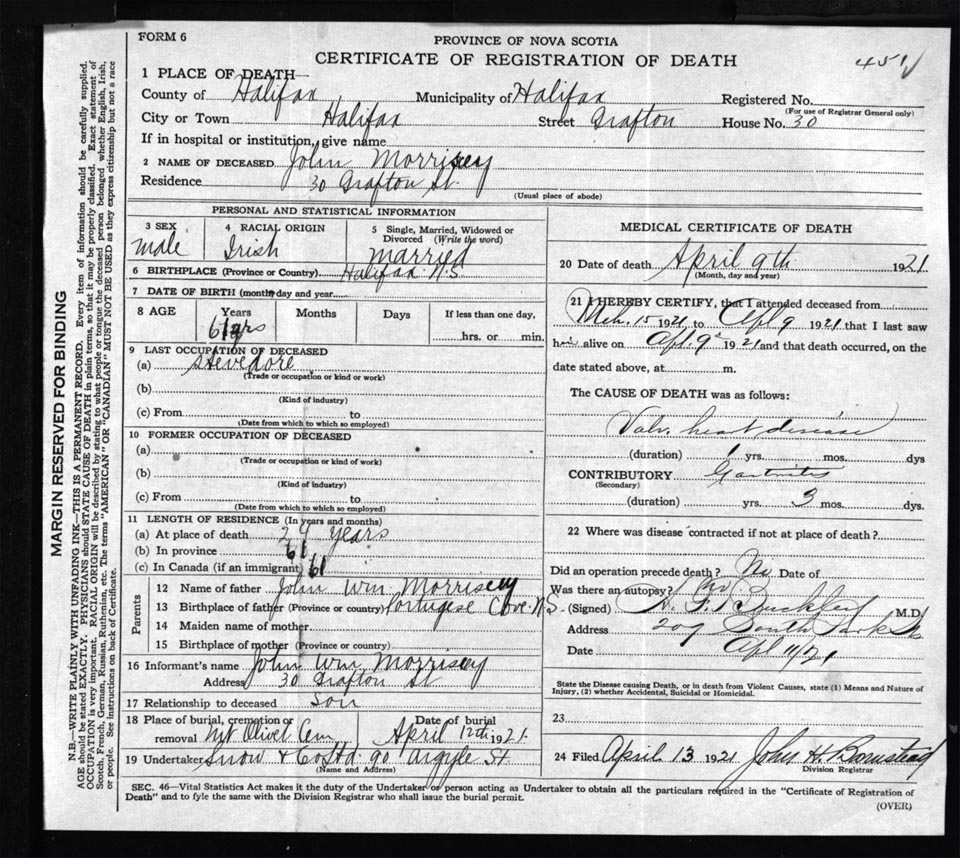 FORM 6
PROVINCE OF NOVA SCOTIA
CERTIFICATE OF REGISTRATION OF DEATH
451
1 PLACE OF DEATH—
County of Halifax Municipality of Halifax Registered No.
(For use of Registrar General only)
City or Town Halifax Street Grafton House No. 30
If in hospital or institution, give name
2 NAME OF DECEASED John Morrisey
Residence 30 Grafton St.
(Usual place of abode)
PERSONAL AND STATISTICAL INFORMATION
3 SEX 4 RACIAL ORIGIN 5 Single, Married, Widowed or Divorced (Write the word)
Male Irish Married
6 BIRTHPLACE (Province or Country) Halifax N.S.
7 DATE OF BIRTH (month, day and year
8 AGE Years Months Days If less than one day,
61 yrs hrs. or min.
9 LAST OCCUPATION OF DECEASED
(a) Stevedore
(Trade or occupation or kind or work)
(b)
(Kind of industry)
(c) From to
(Date from which to which so employed)
10 FORMER OCCUPATION OF DECEASED
(a)
(Trade or occupation or kind or work)
(b)
(Kind of industry)
(c) From to
(Date from which to which so employed)
11 LENGTH OF RESIDENCE (In years and months)
(a) At place of death 24 years
(b) In province 61
(c) In Canada (if an immigrant) 61
Parents
12 Name of father John Wm Morrisey
13 Birthplace of father (Province or country) Portugese Cove N.S.
14 Maiden name of mother
15 Birthplace of mother (Province or country)
16 Informant's name John Wm Morrisey
Address 30 Grafton St
17 Relationship to deceased Son
18 Place of burial, cremation or removal Mt Olivet Cem Date of burial April 12th 1921.
19 Undertaker Snow & Co Ltd 90 Argyle St.
(Name and Address)
MEDICAL CERTIFICATE OF DEATH
20 Date of death April 9th 1921
(Month, day and year)
21 I HEREBY CERTIFY, that I attended deceased from
Mch. 15 1921 to Apl 9 1921 that I last saw
him alive on Apl. 9 1921 and that death occurred, on the
date stated above, at m.
The CAUSE OF DEATH was as follows:
Valv. heart disease
(duration) 1 yrs. mos. dys
CONTRIBUTORY Gastritis
(Secondary)
(duration) yrs. 3 mos. dys.
22 Where was disease contracted if not at place of death?
Did an operation precede death? No Date of
Was there an autopsy? No
(Signed) Buckley M.D.
Address 209 South Park St
Date Apl 11/21
State the Disease causing Death, or in death from Violent Causes, state (1) Means and Nature of
Injury, (2) whether Accidental, Suicidal or Homicidal.
23
24 Filed April 13 1921 John H. Barnstead
Division Registrar
SEC. 46—Vital Statistics Act makes it the duty of the Undertaker or person acting as Undertaker to obtain all the particulars required in the "Certificate of Registration of
Death" and to fyle the same with the Division Registrar who shall issue the burial permit.
(OVER)
MARGIN RESERVED FOR BINDING
N.B.—WRITE PLAINLY WITH UNFADING INK—THIS IS A PERMANENT RECORD. Every item of information should be carefully supplied.
AGE should be stated EXACTLY. PHYSICIANS should STATE CAUSE OF DEATH in plain terms, so that it may be properly classified. Exact statement of
OCCUPATION is very important. RACIAL ORIGIN will be described by stating to what people or tongue the deceased person belonged whether English, Irish,
Scotch, French, German, Russian, Ruthenian, etc. The terms "AMERICAN" OR "CANADIAN" MUST NOT BE USED as they express citizenship but not a race
or people. See instructions on back of Certificate.